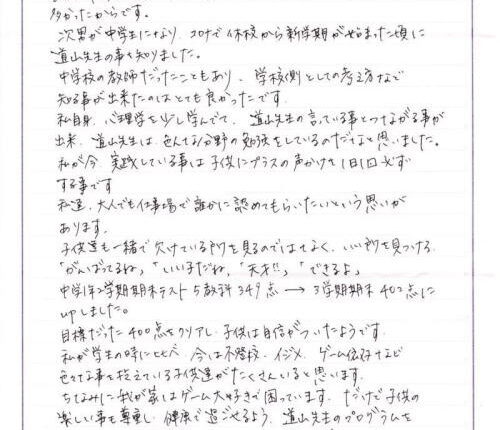 多かったからです。
次男が中学生になり、コロナで休校から新学期が始まった頃に
道山先生の事を知りました。
中学校の教師だったこともあり、学校側としての考え方など
知る事が出来たのはとても良かったです
私自身、心理学を少し学んでて、道山先生の言っている事とつながる事が
出来、道山先生は、色んな分野の勉強をしているのだなと思いました。
私が今、実践している事は子供にプラスの声かけを1日1回必ず
する事です
私達、大人でも仕事場で誰かに認めてもらいたいという思いが
あります。
子供達も一緒で欠けている所を見るのではなく、いい所を見つける
「がんばってるね」「いい子だね」「天才!!」「できるよ」
中学1年2学期期末テスト5教科349点→3学期期末402点に
upしました。
目標だった400点をクリアし、子供は自信がついたようです。
私が学生の時に比べ、今は不登校・イジメ、ゲーム依存など
色々な事を抱えている子供達がたくさんいると思います。
ちなみに我が家はゲーム大好きで困っています。だけど子供の
楽しい事も尊重し、健康で過ごせるよう、道山先生のプログラムを